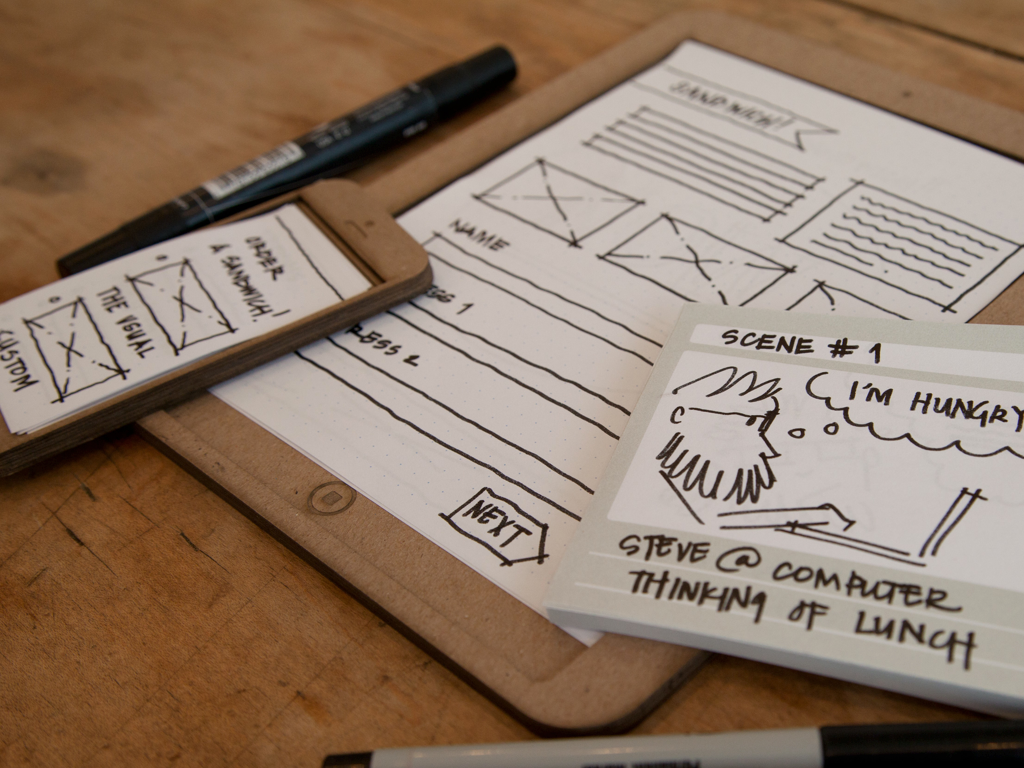 SANDWICH!
NAME
ESS 1
RESS 2
NEXT
ORDER
A SANDWICH!
THE USUAL
CUSTOM
SCENE # 1
I'M HUNGRY
STEVE @ COMPUTER
THINKING OF LUNCH